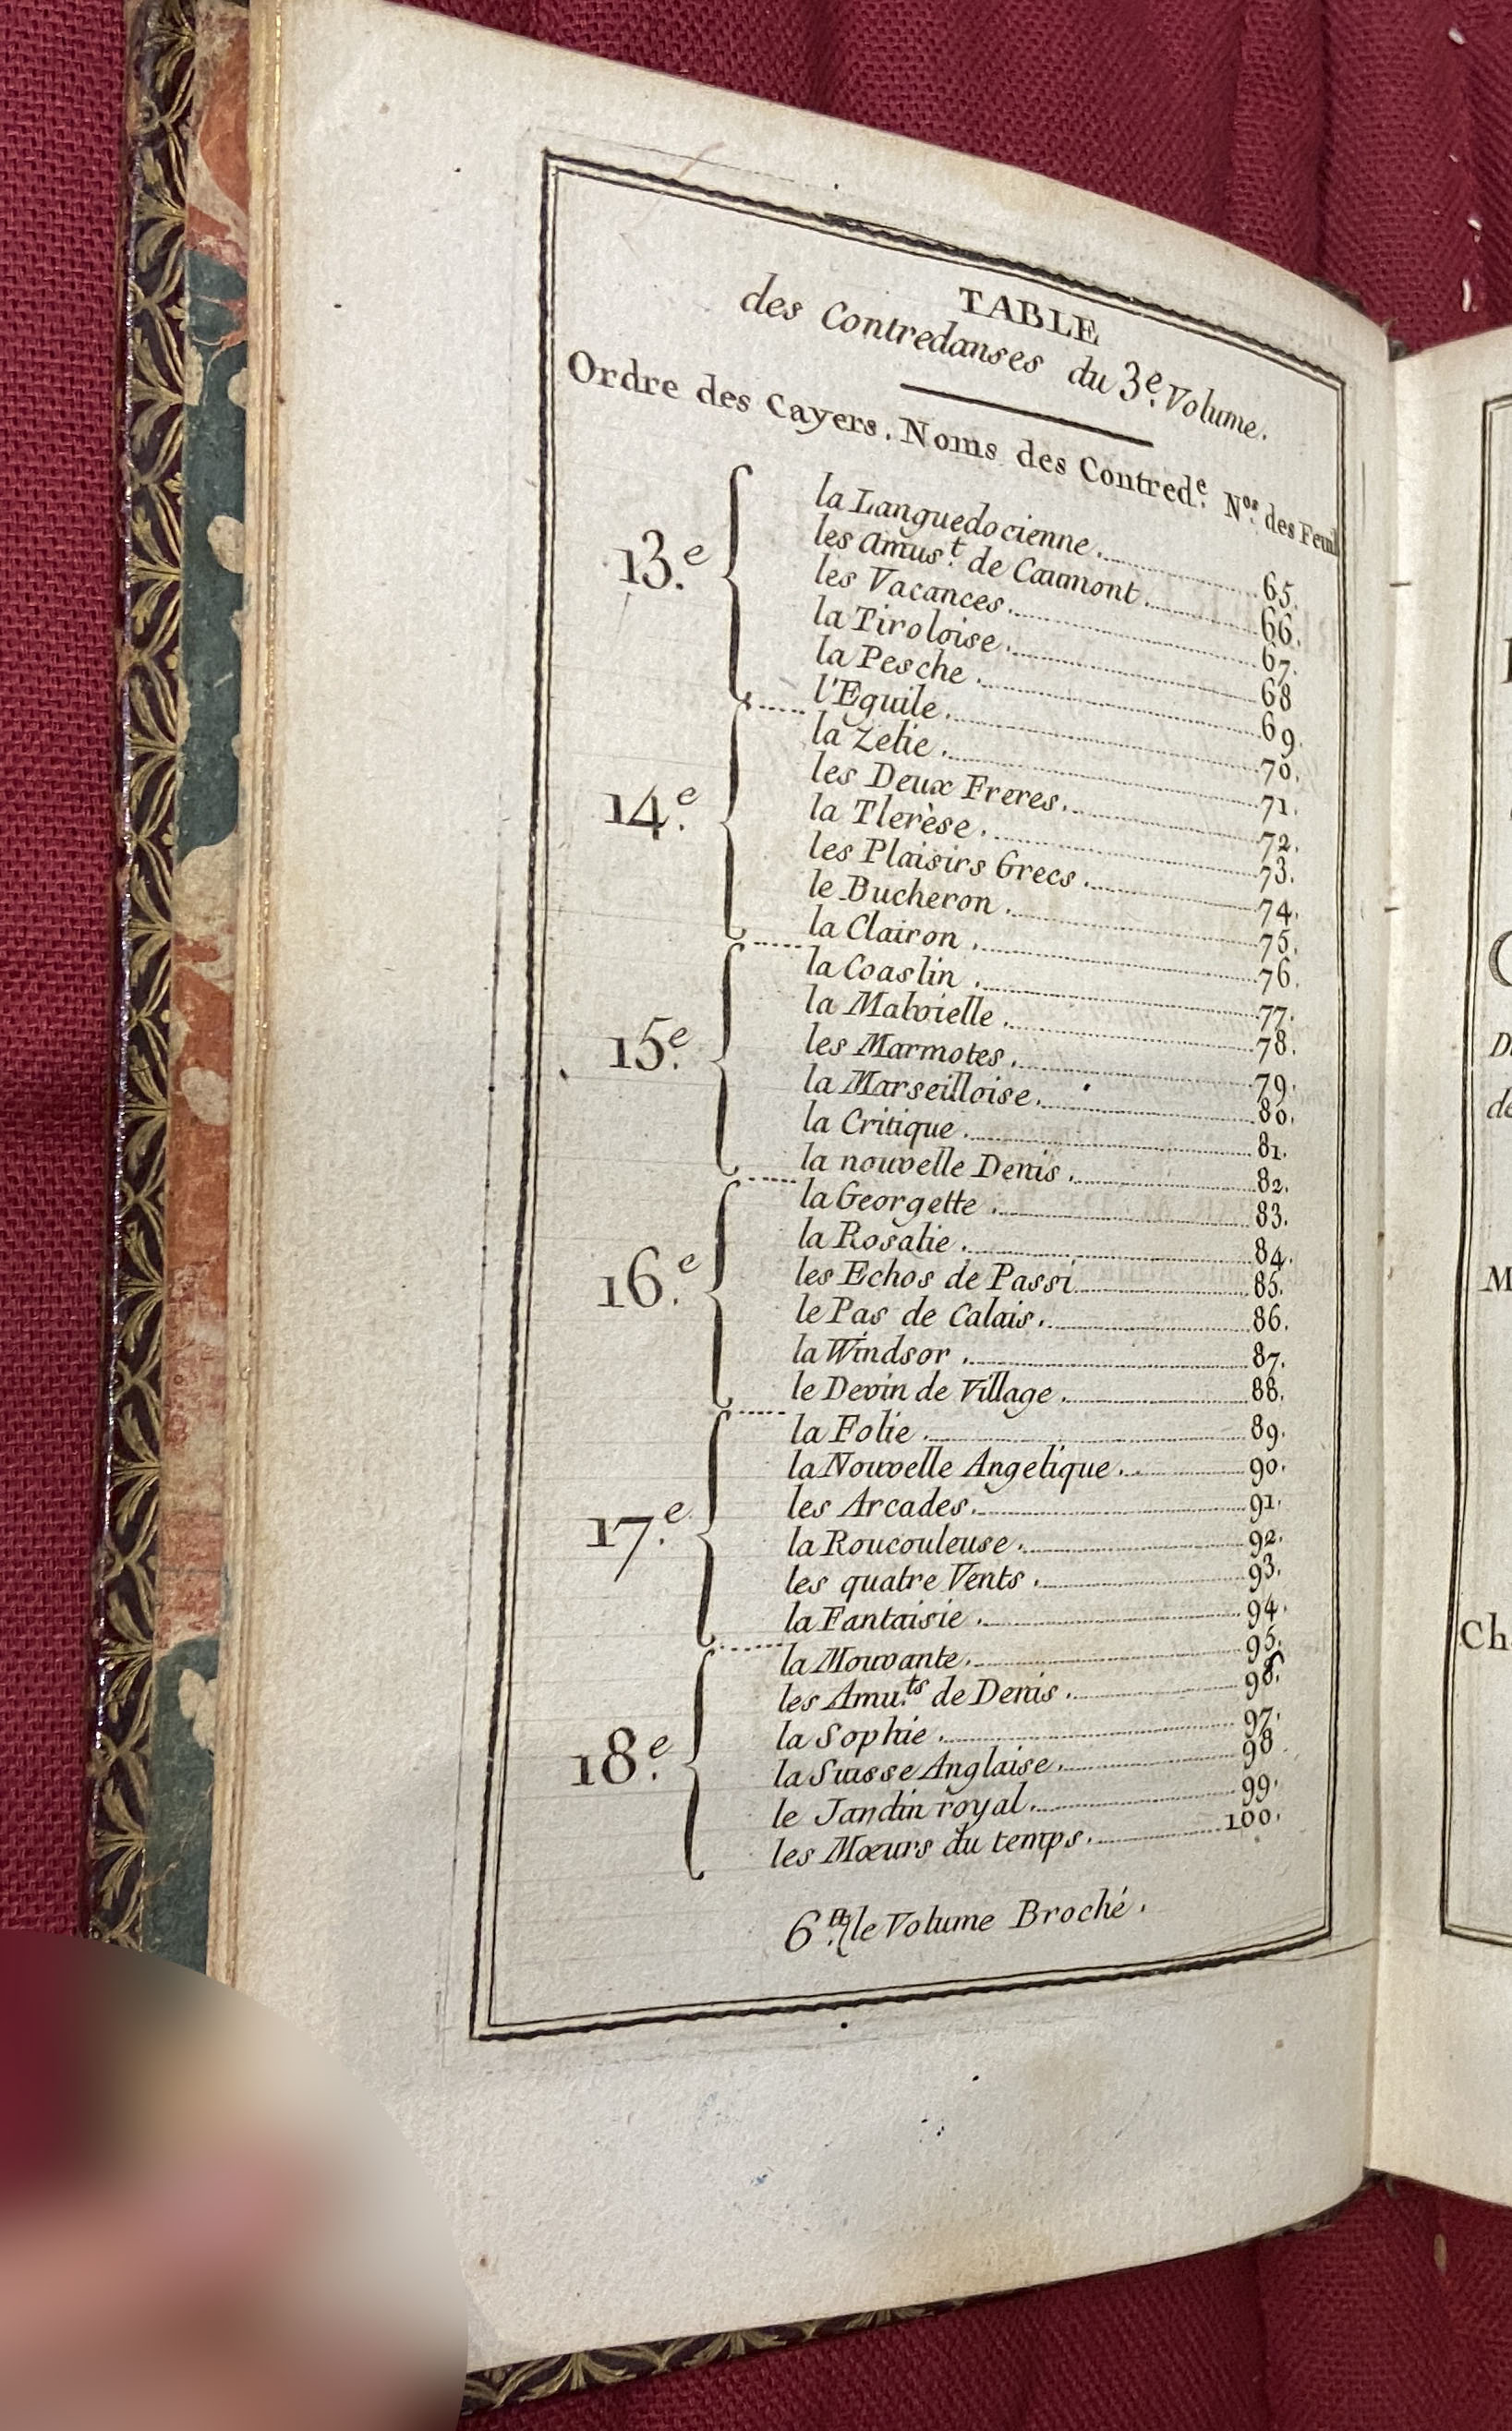 TABLE
des Contredanses du 3.e Volume.
Ordre des Cayers. Noms des Contred.e N.os des Feuil
13.e
la Languedocienne. 65.
les Amus.t de Caumont. 66.
les Vacances. 67.
la Tiroloise. 68
la Pesche. 69.
l'Eguile. 70.
14.e
la Zelie. 71.
les Deux Freres. 72.
la Tlerèse. 73.
les Plaisirs Grecs. 74.
le Bucheron. 75.
la Clairon. 76.
15.e
la Coaslin. 77.
la Malvielle. 78.
les Marmotes. 79.
la Marseilloise. 80.
la Critique. 81.
la nouvelle Denis. 82.
16.e
la Georgette. 83.
la Rosalie. 84.
les Echos de Passi 85.
le Pas de Calais. 86.
la Windsor. 87.
le Devin de Village. 88.
17.e
la Folie. 89.
la Nouvelle Angelique. 90.
les Arcades. 91.
la Roucouleuse. 92.
les quatre Vents. 93.
la Fantaisie. 94.
18.e
la Mouvante. 95.
les Amu.ts de Denis.
la Sophie. 97.
la Suisse Anglaise. 98
le Jardin royal. 99.
les Mœurs du temps. 100.
6.tt le Volume Broché.